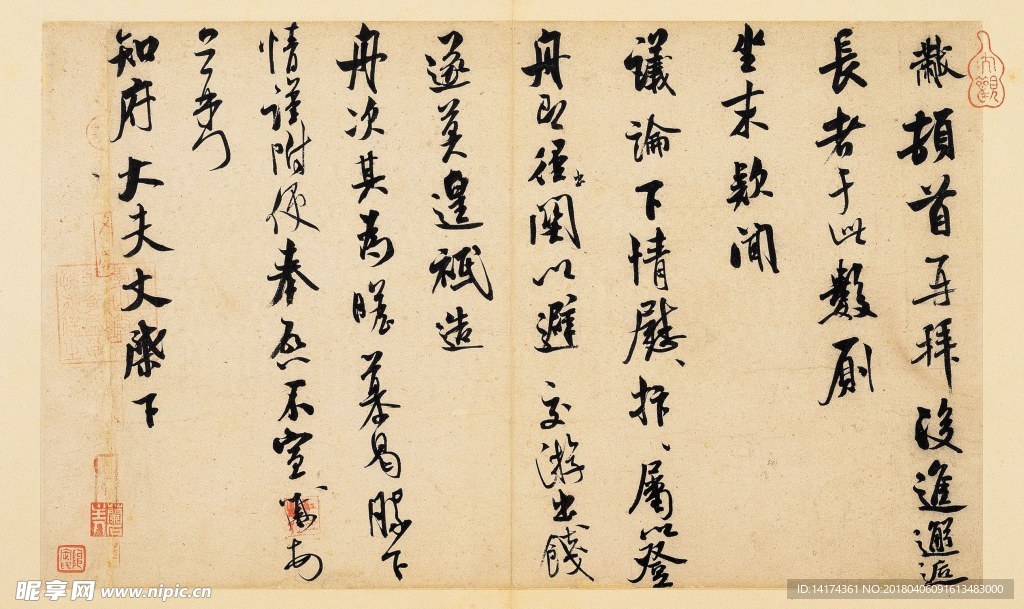 黻頓首再拜後進邂逅
長者于此數厠
坐末欵聞
議論下情慰、抃、屬以登
舟即徑出關以避交游出餞
遂莫遑祗造
舟次其為瞻慕曷勝下
情謹附便奉啓不宣黻
知府大夫丈棨下
昵享网 www.nipic.cn
ID:14174361 NO:20180406091613483000